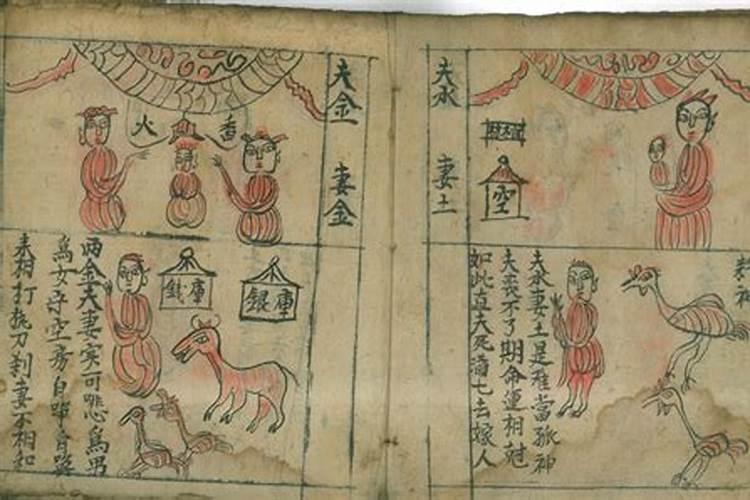 夫水 妻土
空
夫水妻土是難當孤神
夫喪不了期命運相尅
如此直夫死 七去嫁人
夫金 妻金
香火
銀庫
錢庫
兩金夫妻实可 為男
為女守空房自單身
夫相打 刀刹妻不相和